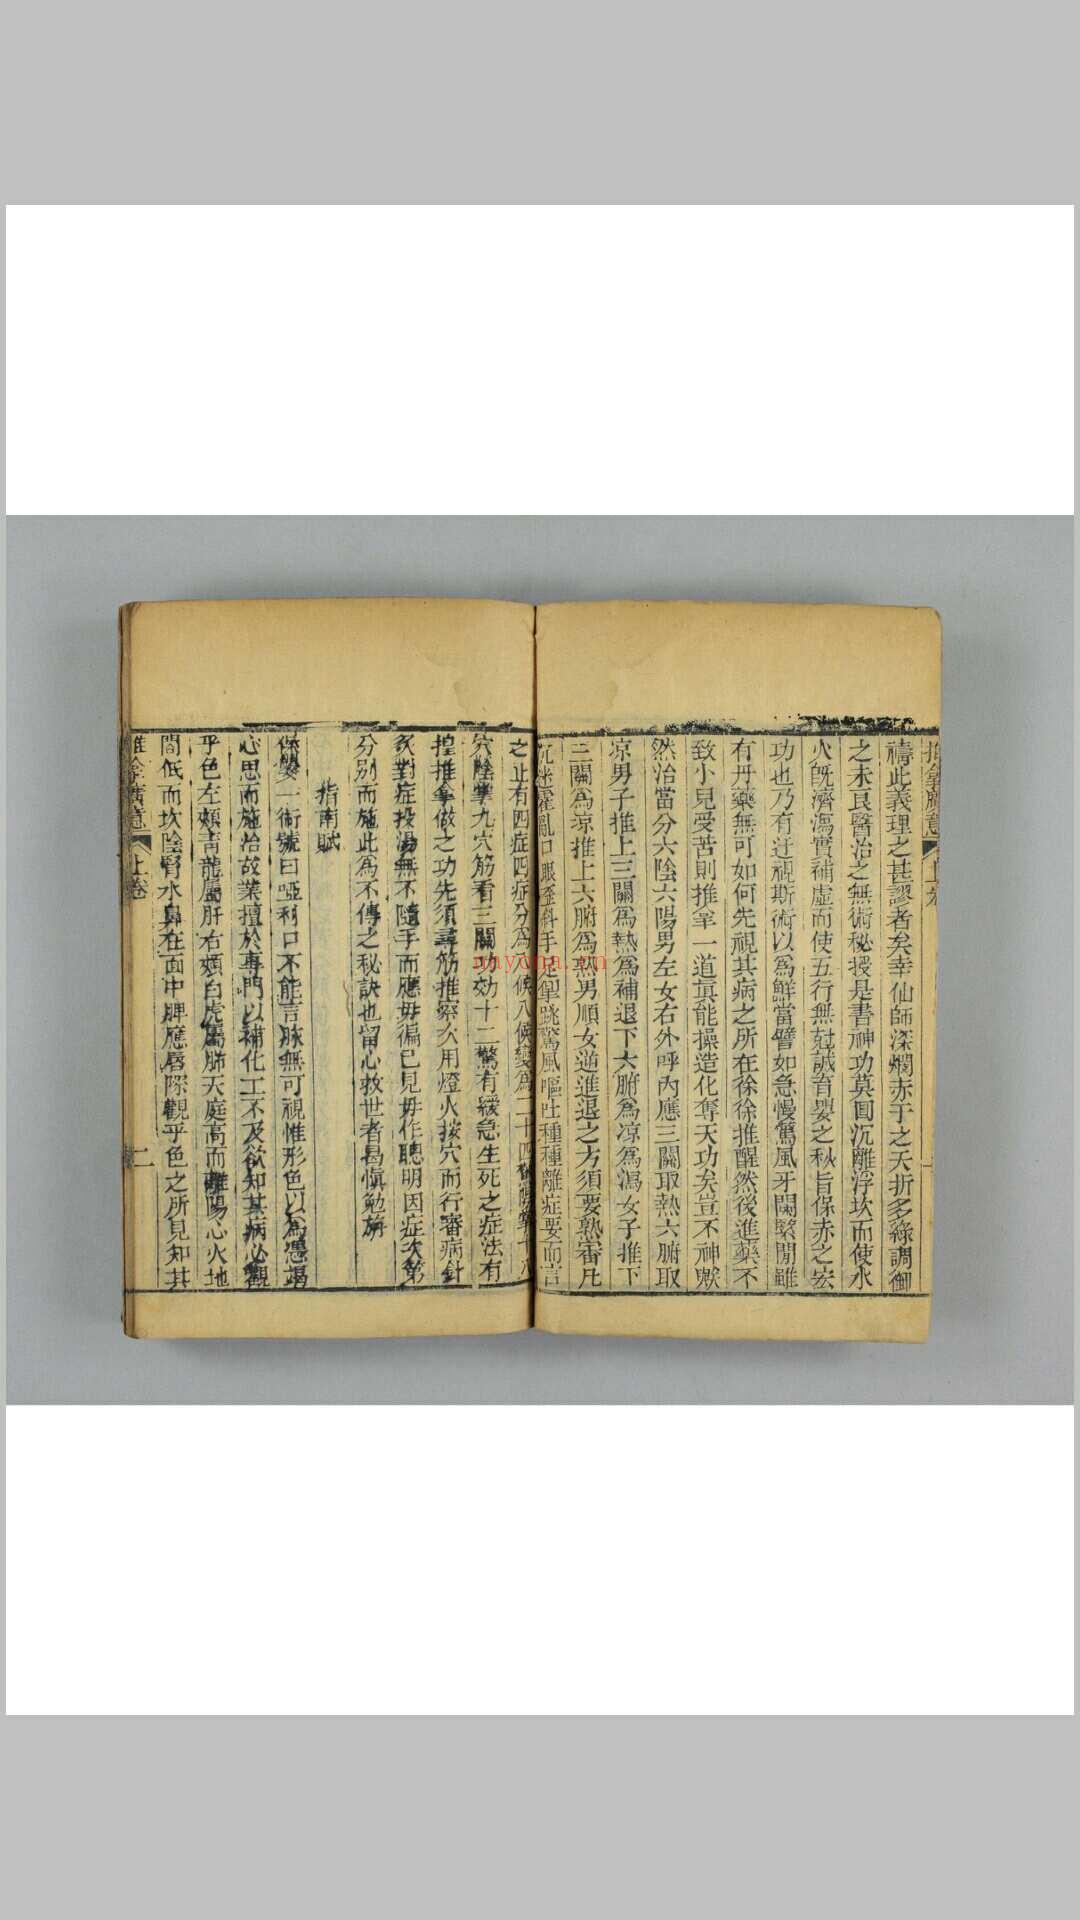 禱此義理之甚謬者矣幸仙師深憫赤子之夭折多緣調御
之未良醫治之無術秘授是書神功莫囘沉離浮坎而使水
火旣濟瀉實補虛而使五行無尅誠育嬰之秋旨保赤之宏
功也乃有迂視斯術以爲鮮當譬如急慢驚風牙關緊閉雖
有丹藥無可如何先視其病之所在徐徐推醒然後進藥不
致小兒受苦則推拿一道眞能操造化奪天功矣豈不神歟
然治當分六陰六陽男左女右外呼內應三關取熱六腑取
凉男子推上三關爲熱爲補退下六腑爲凉爲瀉女子推下
三關爲凉推上六腑爲熱男順女逆進退之方須要熟審凡
沉迷霍亂口眼歪斜手足掣跳驚風嘔吐種種雜症要而言
之止有四症四症分爲八候八候變爲二十四
穴陰掌九穴筋看三關功効十二驚有緩急生死之症法有
揑推拿做之功先須尋筋推察次用燈火按穴而行審病針
灸對症投湯無不隨手而應毋徧己見毋作聰明因症次第
分別而施此爲不傳之秘訣也留心救世者曷愼勉旃
指南賦
保嬰一術號曰啞科口不能言脉無可視惟形色以爲憑竭
心思而施治故業擅於專門以補化工不及欲知其病必觀
乎色左頰青龍屬肝右頰白虎屬肺天庭高而離陽心火地
閣低而坎陰腎水鼻在面中脾應唇際觀乎色之所見知其
推拿廣意
上卷
二